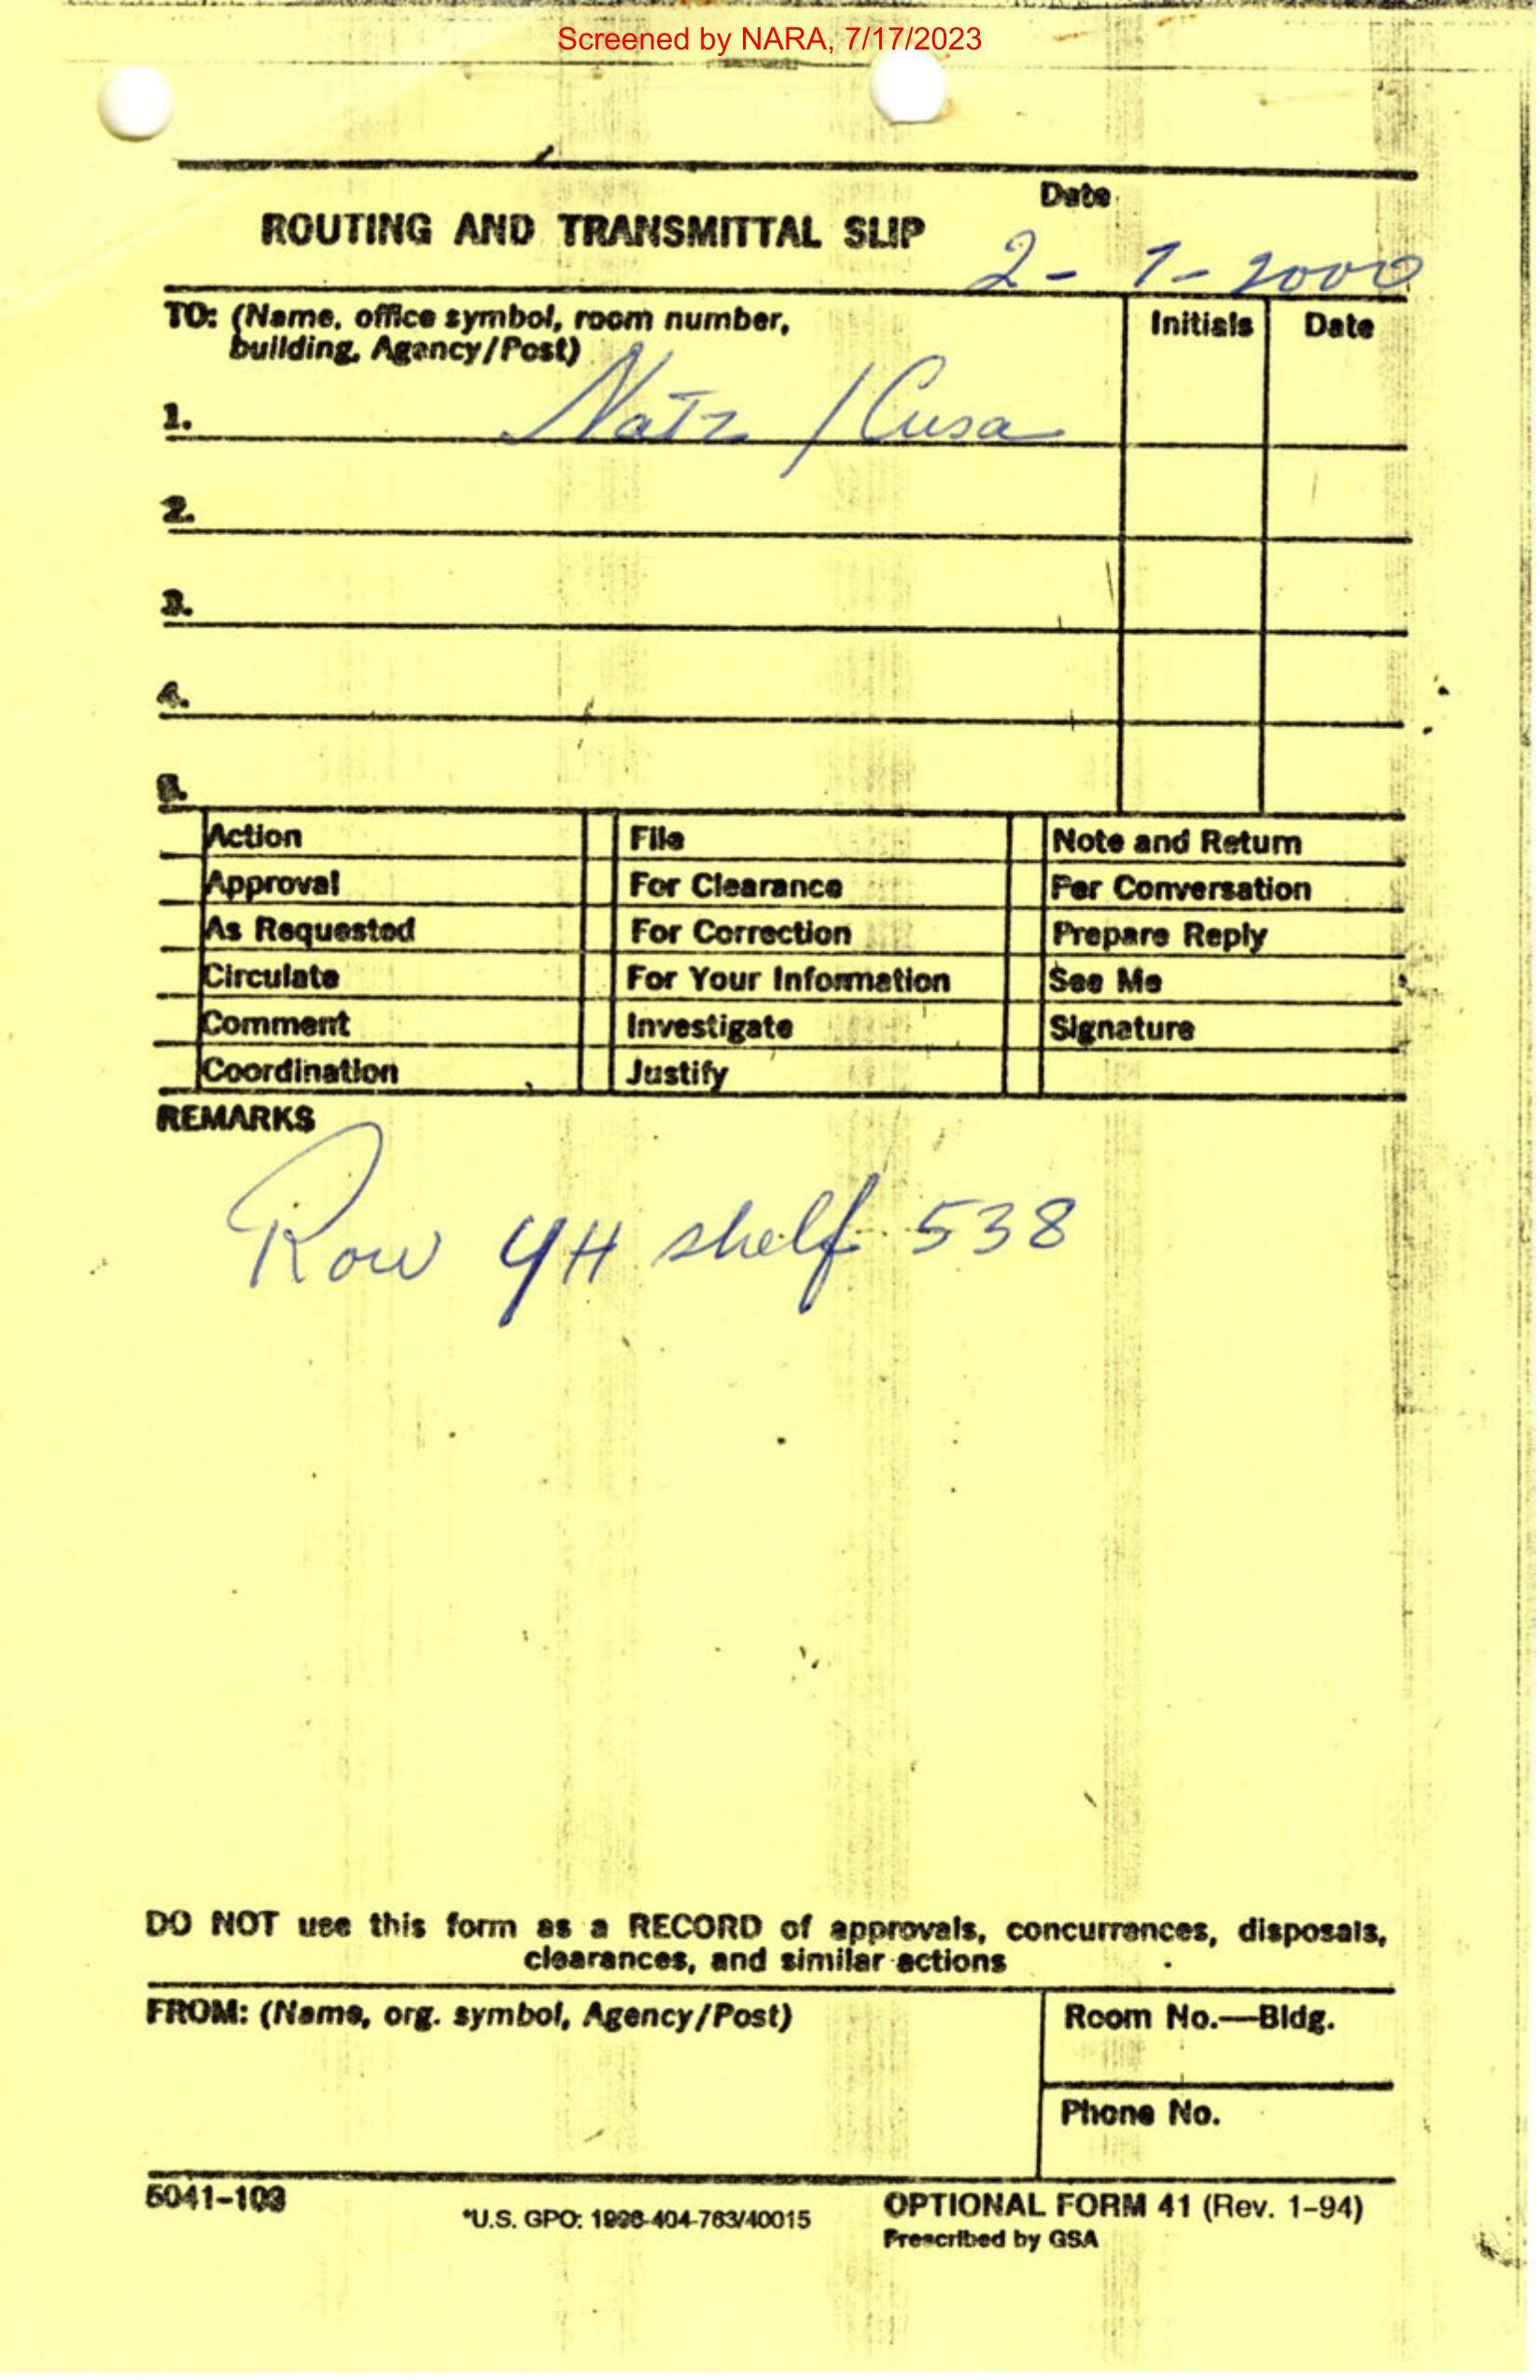 Screened by NARA, 7/17/2023
Date
ROUTING AND TRANSMITTAL SLIP
2-7-2000
TO: (Name, office symbol, room number, building, Agency/Post)
Initials Date
1. /Cusa
2.
3.
4.
5.
Action File Note and Return
Approval For Clearance Per Conversation
As Requested For Correction Prepare Reply
Circulate For Your Information See Me
Comment Investigate Signature
Coordination Justify
REMARKS
Row 4H shelf 538
DO NOT use this form as a RECORD of approvals, concurrences, disposals,
clearances, and similar actions
FROM: (Name, org. symbol, Agency/Post)
Room No.—Bldg.
Phone No.
5041-103
*U.S. GPO: 1996-404-763/40015
OPTIONAL FORM 41 (Rev. 1-94)
Prescribed by GSA